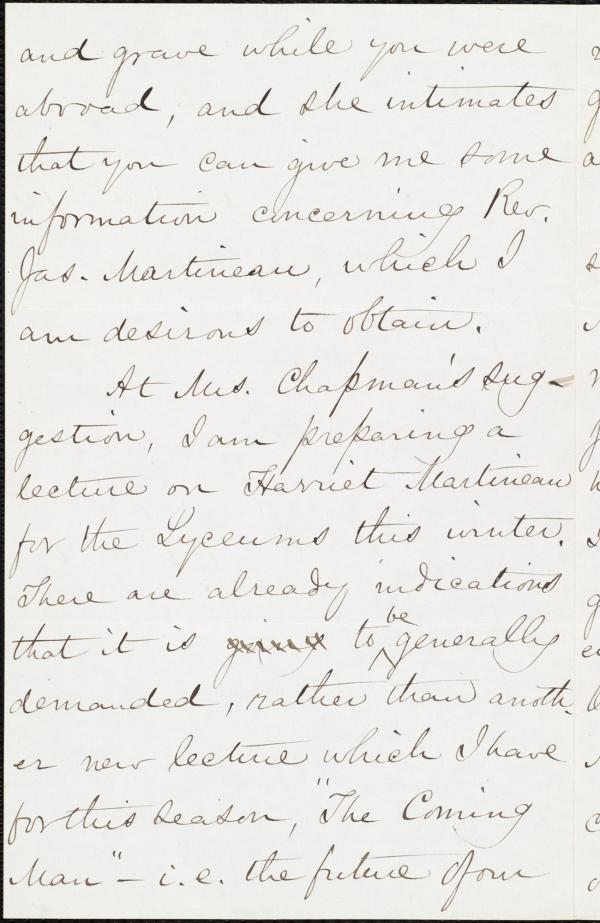 and grave while you were
abroad, and she intimates
that you can give me some
information concerning Rev.
Jas. Martineau, which I
am desirous to obtain.
At Mrs. Chapman's sug-
gestion, I am preparing a
lecture on Harriet Martineau
for the Lyceums this winter.
There are already indications
that it is going to be generally
demanded, rather than anoth-
er new lecture which I have
for this season, "The Coming
Man" – i.e. the future of our